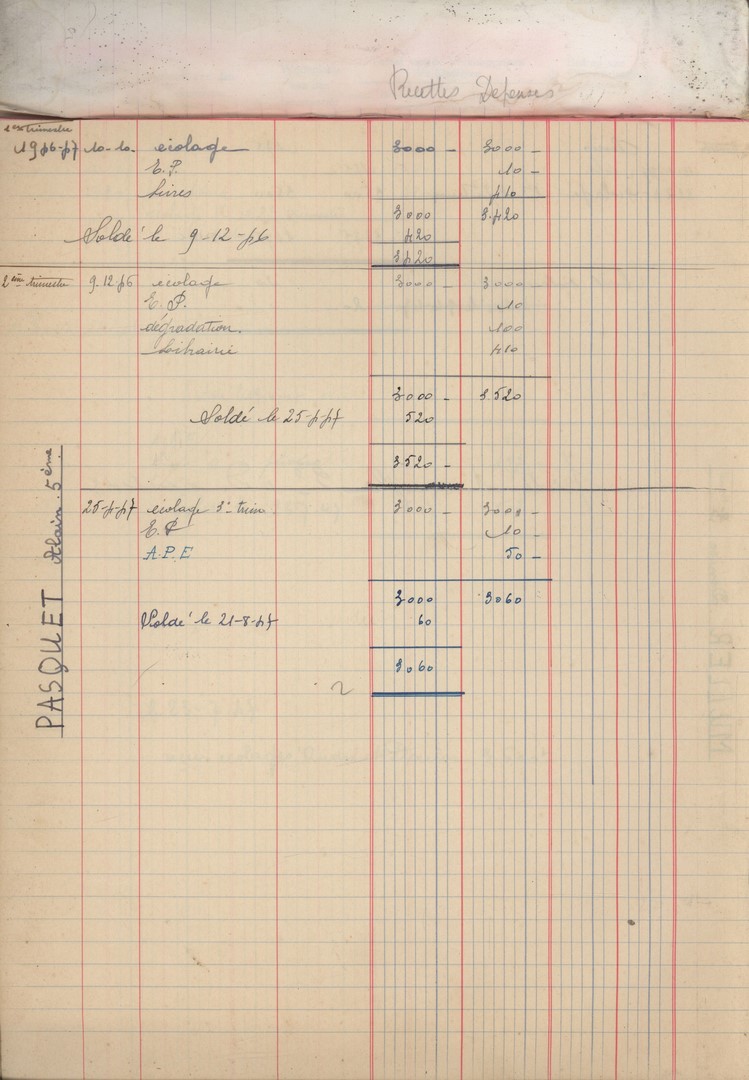 Recettes Dépenses
1er trimestre
1946-47 10-10. écolage 3000 - 3000 -
E.P. 10 -
Livres 410
3000 3.420
Soldé le 9-12-46 420
3420
2ème trimestre 9.12.46 écolage 3000 - 3000 -
E.P. 10
dégradation. 100
Librairie 410
3000 - 3520
Soldé le 25-4-47 520
3520 -
25-4-47 écolage 3e trim 3000 - 3000 -
E.P 10 -
A.P.E 50 -
3000 3060
Soldé le 21-8-47 60
3060
PASQUET Alain. 5ème